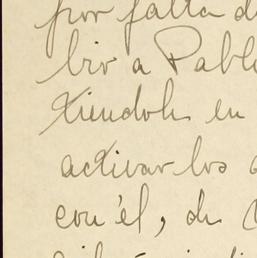 por falta d
bir a Pabl
tiendole en
activar los
con él, de